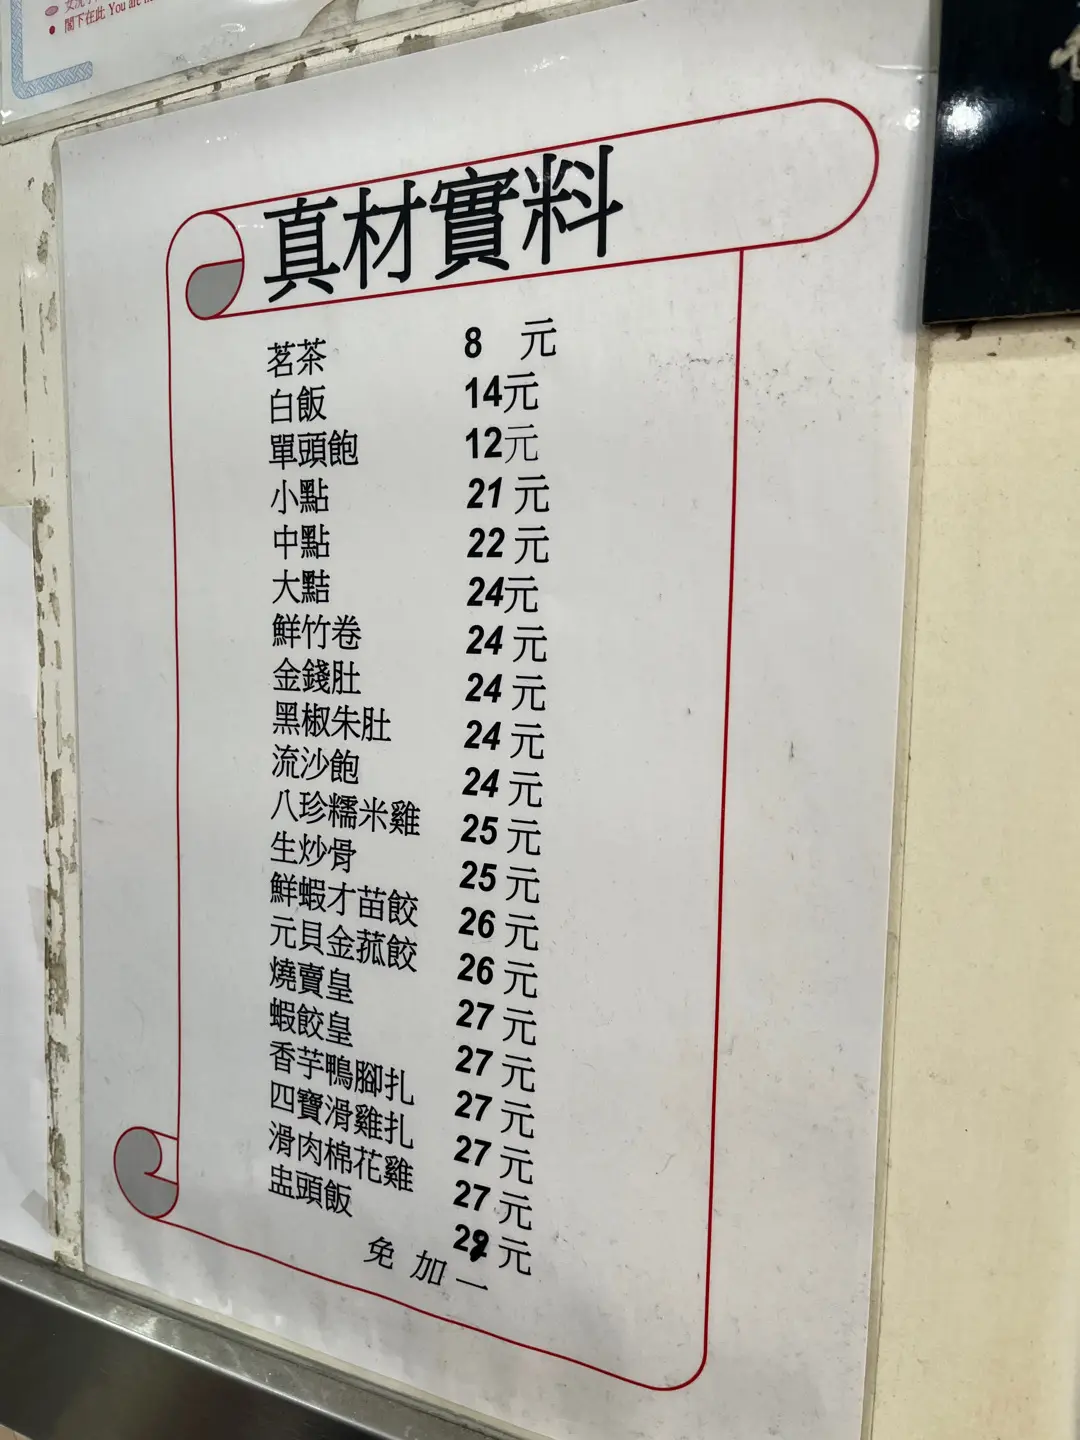 閣下在此 You are
真材實料
茗茶 8 元
白飯 14元
單頭飽 12元
小點 21 元
中點 22 元
大點 24元
鮮竹卷 24 元
金錢肚 24 元
黑椒朱肚 24 元
流沙飽 24 元
八珍糯米雞 25 元
生炒骨 25 元
鮮蝦才苗餃 26 元
元貝金菰餃 26 元
燒賣皇 27 元
蝦餃皇 27 元
香芋鴨腳扎 27 元
四寶滑雞扎 27 元
滑肉棉花雞 27 元
盅頭飯 29 元
免加一